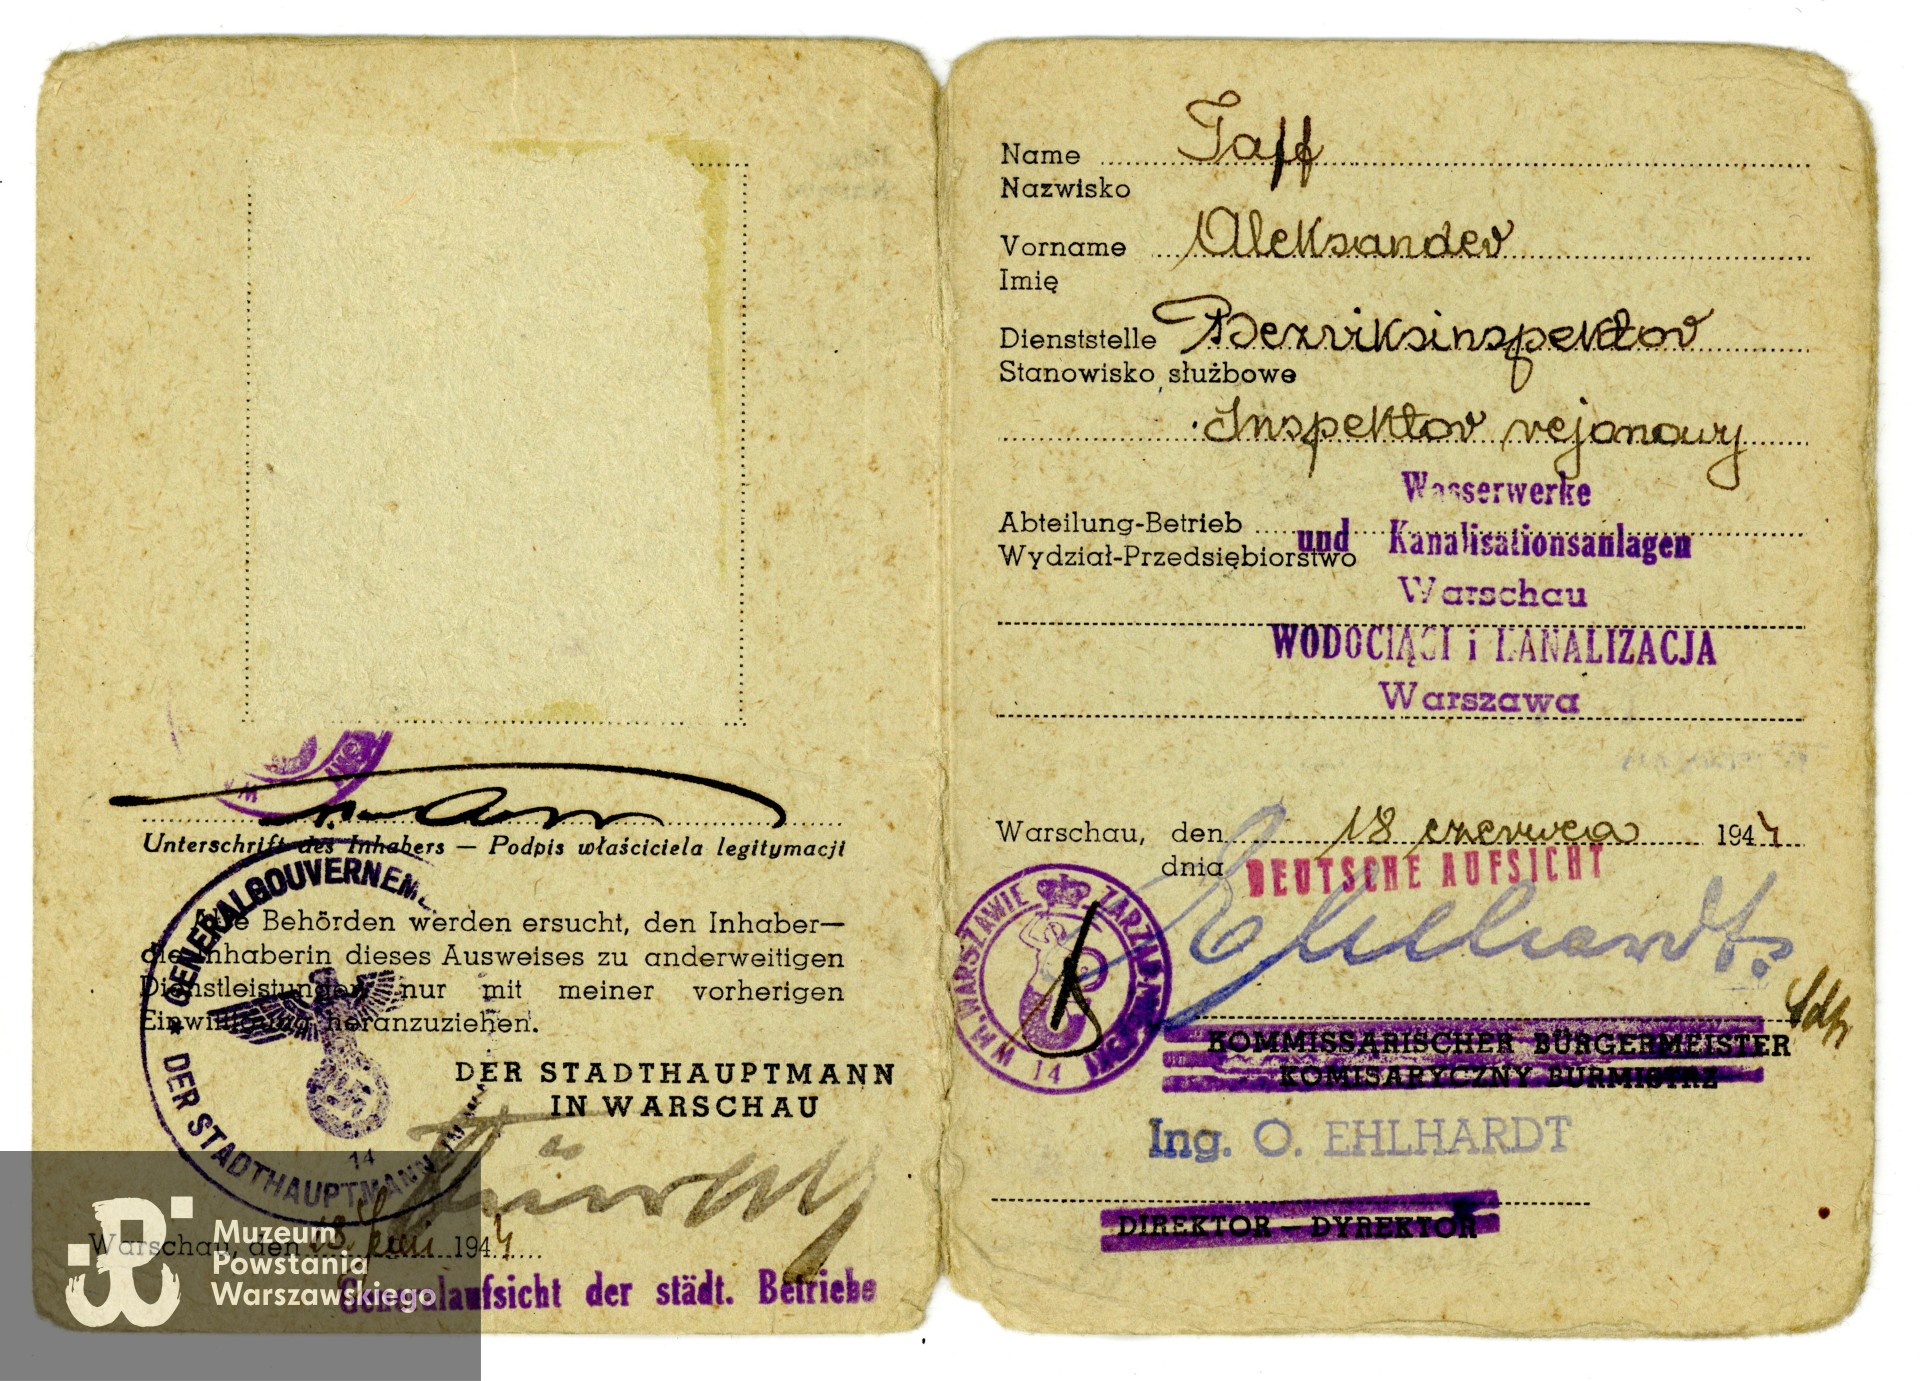 Unterschrift des Inhabers — Podpis właściciela legitymacji
GENERALGOUVERNEM
DER STADTHAUPTMANN IN W
14
Alle Behörden werden ersucht, den Inhaber—
die Inhaberin dieses Ausweises zu anderweitigen
Dienstleistungen nur mit meiner vorherigen
Einwilligung heranzuziehen.
DER STADTHAUPTMANN
IN WARSCHAU
Warschau, den 18 Juni 1944
Generalaufsicht der städt. Betriebe
Muzeum
Powstania
Warszawskiego
Name Taff
Nazwisko
Vorname Aleksander
Imię
Dienststelle Bezirksinspektor
Stanowisko służbowe
Inspektor rejonowy
Wasserwerke
Abteilung-Betrieb
und Kanalisationsanlagen
Wydział-Przedsiębiorstwo
Warschau
WODOCIĄGI i KANALIZACJA
Warszawa
Warschau, den 18 czerwca 1944
dnia
DEUTSCHE AUFSICHT
Ehlhardt
ZARZĄD MIEJSKI W M. WARSZAWIE
14
KOMMISSARISCHER BÜRGERMEISTER
KOMISARYCZNY BURMISTRZ
Ing. O. EHLHARDT
DIREKTOR — DYREKTOR